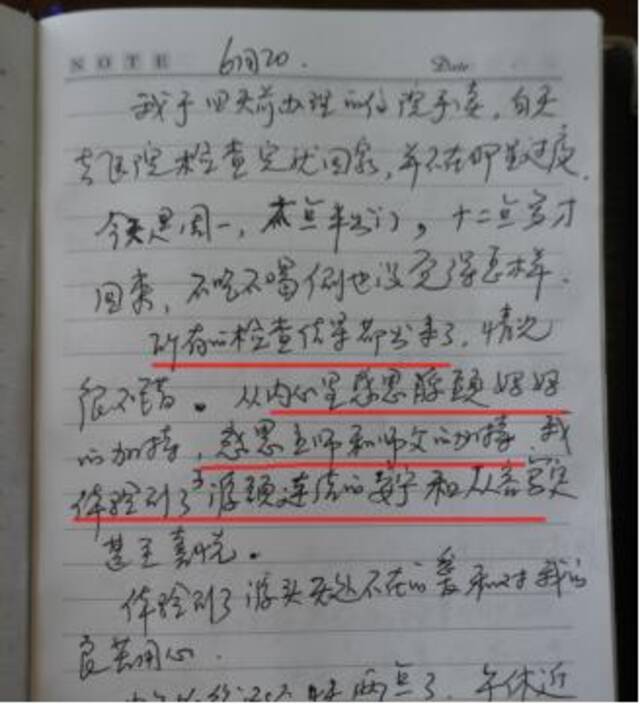 NOTE 6月20. Date
我于四天前办理的住院手续,白天
去医院检查完就回家,并不在那里过夜.
今天是周一,六点半出门,十二点多才
回来,不吃不喝倒也没觉得怎样.
所有的检查结果都出来了,情况
很不错。从内心里感恩源头妈妈
的加持,感恩主师和师父的加持,我
体验到了与源头连结的安宁和从容笃定
甚至喜悦。
体验到了源头无处不在的爱和对我的
良苦用心.
两点了,午休近